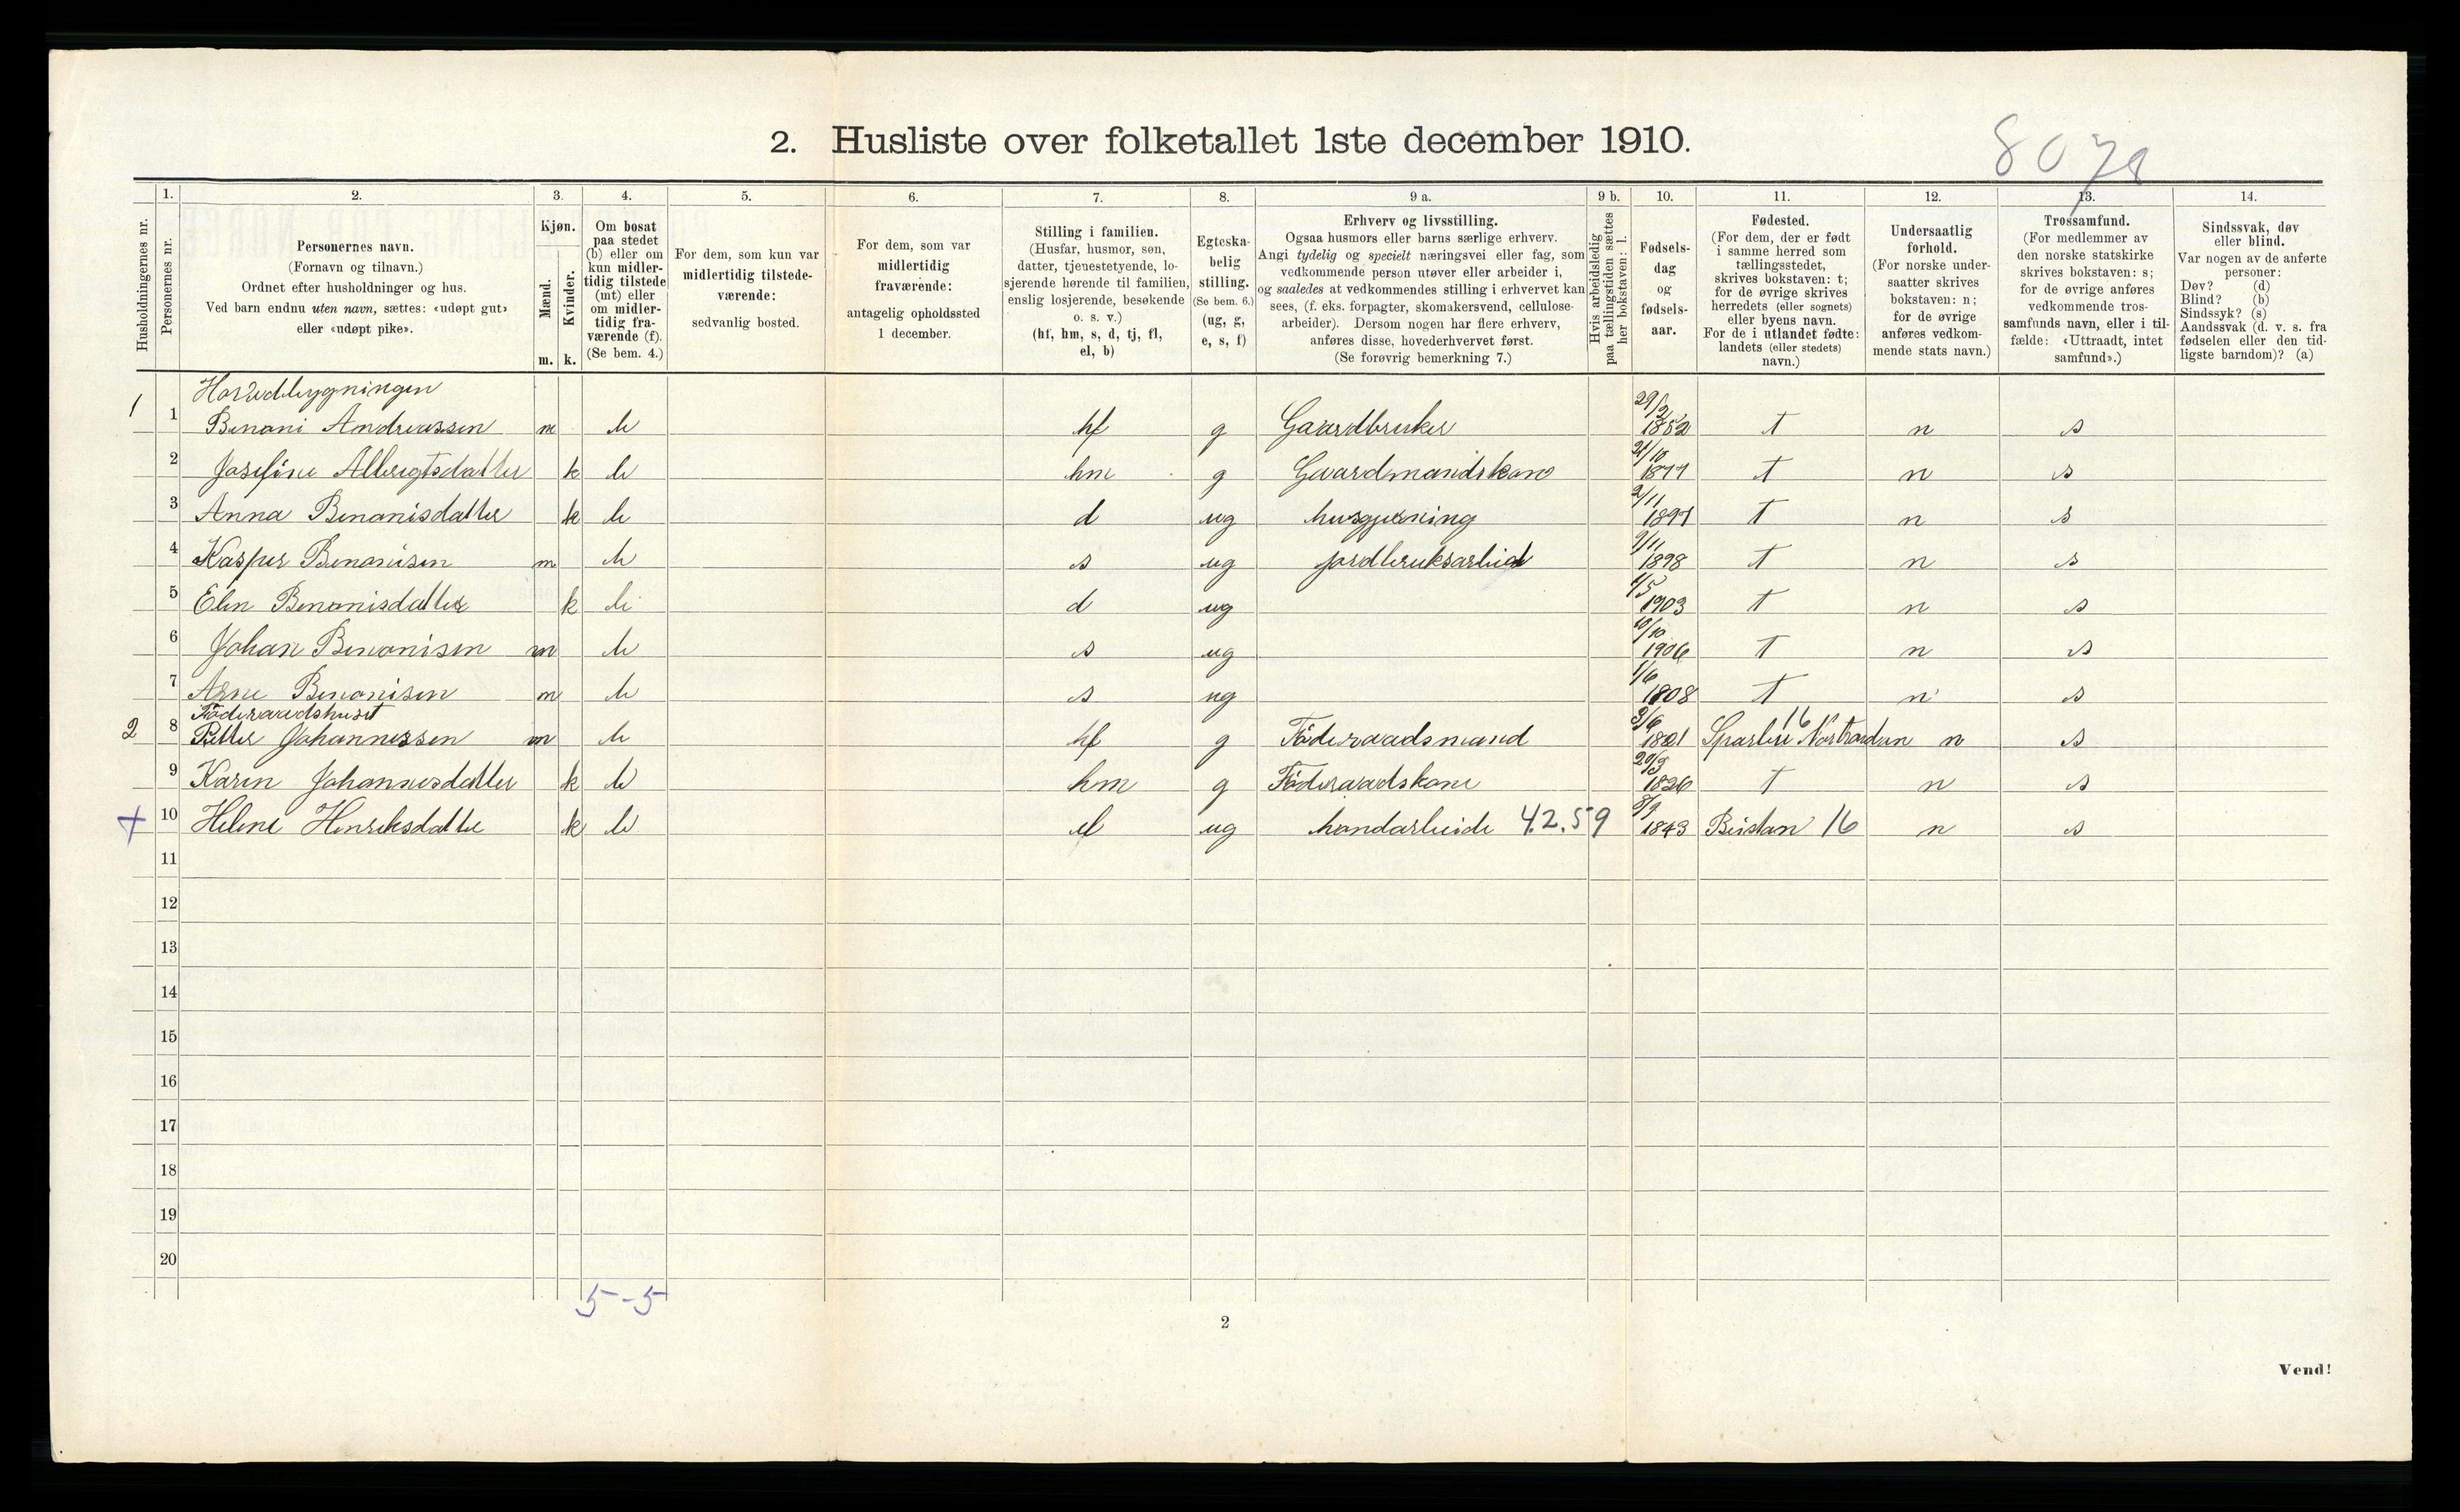 2. Husliste over folketallet 1ste december 1910.
8078
Husholdningernes nr.
1. Personernes nr.
2. Personernes navn. (Fornavn og tilnavn.) Ordnet efter husholdninger og hus. Ved barn endnu uten navn, sættes: «udøpt gut» eller «udøpt pike».
3. Kjøn. Mænd. m. Kvinder. k.
4. Om bosat paa stedet (b) eller om kun midlertidig tilstede (mt) eller om midlertidig fraværende (f). (Se bem. 4.)
5. For dem, som kun var midlertidig tilstedeværende: sedvanlig bosted.
6. For dem, som var midlertidig fraværende: antagelig opholdssted 1 december.
7. Stilling i familien. (Husfar, husmor, søn, datter, tjenestetyende, losjerende hørende til familien, enslig losjerende, besøkende o. s. v.) (hf, hm, s, d, tj, fl, el, b)
8. Egteskabelig stilling. (Se bem. 6.) (ug, g, e, s, f)
9 a. Erhverv og livsstilling. Ogsaa husmors eller barns særlige erhverv. Angi tydelig og specielt næringsvei eller fag, som vedkommende person utøver eller arbeider i, og saaledes at vedkommendes stilling i erhvervet kan sees, (f. eks. forpagter, skomakersvend, cellulosearbeider). Dersom nogen har flere erhverv, anføres disse, hovederhvervet først. (Se forøvrig bemerkning 7.)
9 b. Hvis arbeidsledig paa tællingstiden sættes her bokstaven: l.
10. Fødselsdag og fødselsaar.
11. Fødested. (For dem, der er født i samme herred som tællingsstedet, skrives bokstaven: t; for de øvrige skrives herredets (eller sognets) eller byens navn. For de i utlandet fødte: landets (eller stedets) navn.)
12. Undersaatlig forhold. (For norske undersaatter skrives bokstaven: n; for de øvrige anføres vedkommende stats navn.)
13. Trossamfund. (For medlemmer av den norske statskirke skrives bokstaven: s; for de øvrige anføres vedkommende trossamfunds navn, eller i tilfælde: «Uttraadt, intet samfund».)
14. Sindssvak, døv eller blind. Var nogen av de anførte personer: Døv? (d) Blind? (b) Sindssyk? (s) Aandssvak (d. v. s. fra fødselen eller den tidligste barndom)? (a)
Hovedbygningen
1 1 Benoni Andreassen m b hf g Gaardbruker 29/2 1852 t n s
2 Josefine Albregtsdatter k b hm g Gaardmandskone 21/10 1877 t n s
3 Anna Benonisdatter k b d ug husgjerning 2/11 1897 t n s
4 Kasper Benonisen m b s ug jordbruksarbeid 9/11 1898 t n s
5 Elen Benonisdatter k b d ug 1/5 1903 t n s
6 Johan Benonisen m b s ug 10/10 1906 t n s
7 Arne Benonisen m b s ug 1/6 1908 t n s
Föderaadshuset
2 8 Petter Johannessen m b hf g Föderaadsmand 3/6 1821 Sparbu 16 n s
9 Karen Johannesdatter k b hm g Föderaadskone 20/3 1826 t n s
+ 10 Helene Henriksdatter k b el ug handarbeide 42.59 8/9 1843 Beistan 16 n s
11
12
13
14
15
16
17
18
19
20
5-5
2
Vend!